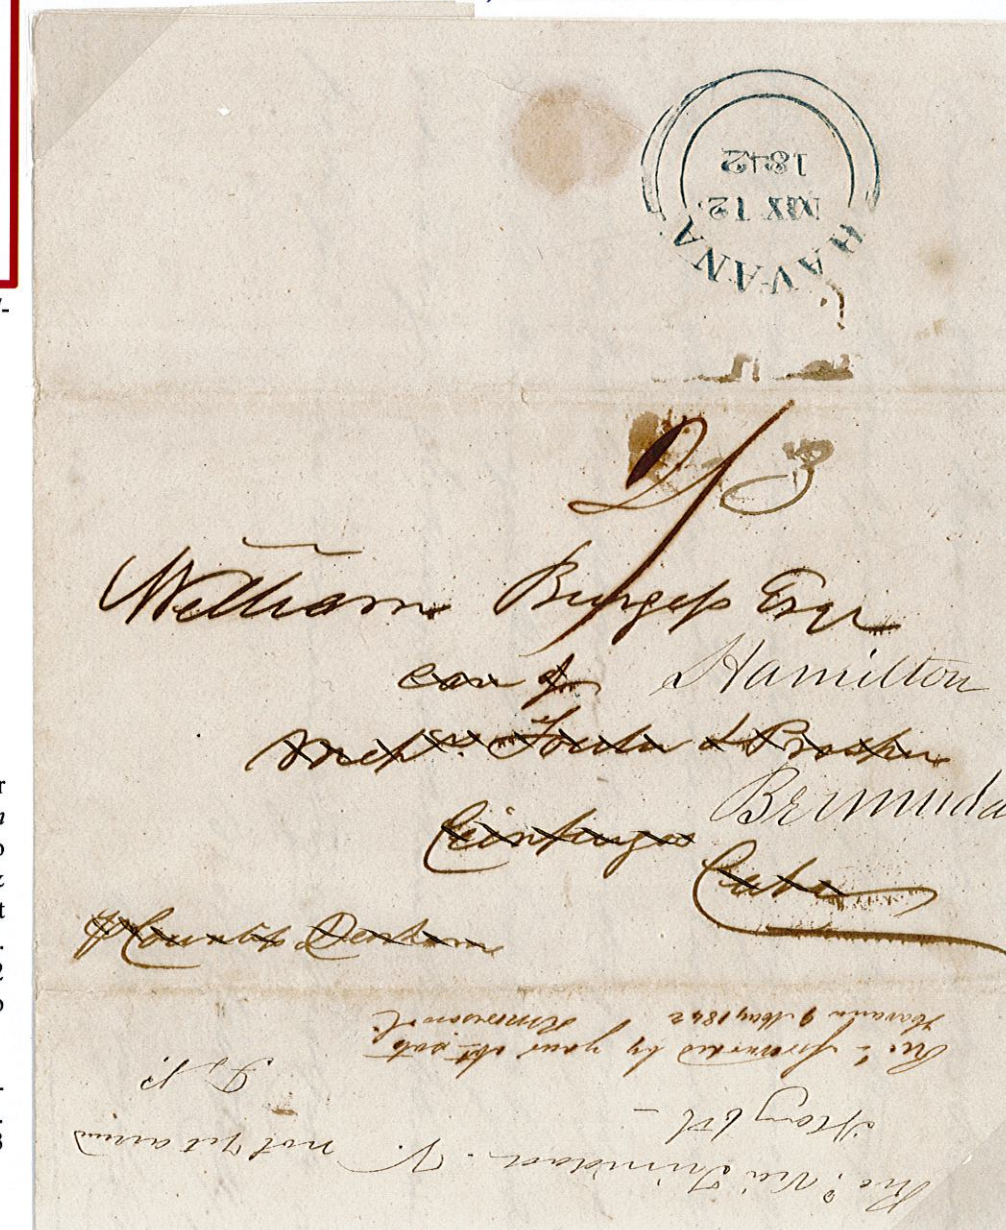 HAVANA
MY 12
1842
2/3
William Burgess Esqr
care of
Hamilton
Messrs.
Bermuda
Cienfuegos
Cuba
p Countess Denham
Rec. & forwarded by your obt. svt.
Havana 9 May 1842
Rec. via Trinidad. V. not yet arrived
May 6th